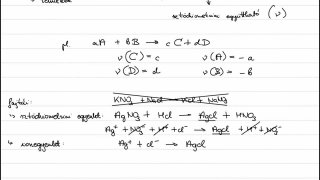 sztöchiometriai együttható (ν)
pl. aA + bB → cC + dD
ν(C) = c ν(A) = -a
ν(D) = d ν(B) = -b
fajtái:
KNO3 + NaCl → KCl + NaNO3
↳ sztöchiometriai egyenlet: AgNO3 + HCl → AgCl + HNO3
Ag+ + NO3- + H+ + Cl- → AgCl + H+ + NO3-
↳ ionegyenlet: Ag+ + Cl- → AgCl